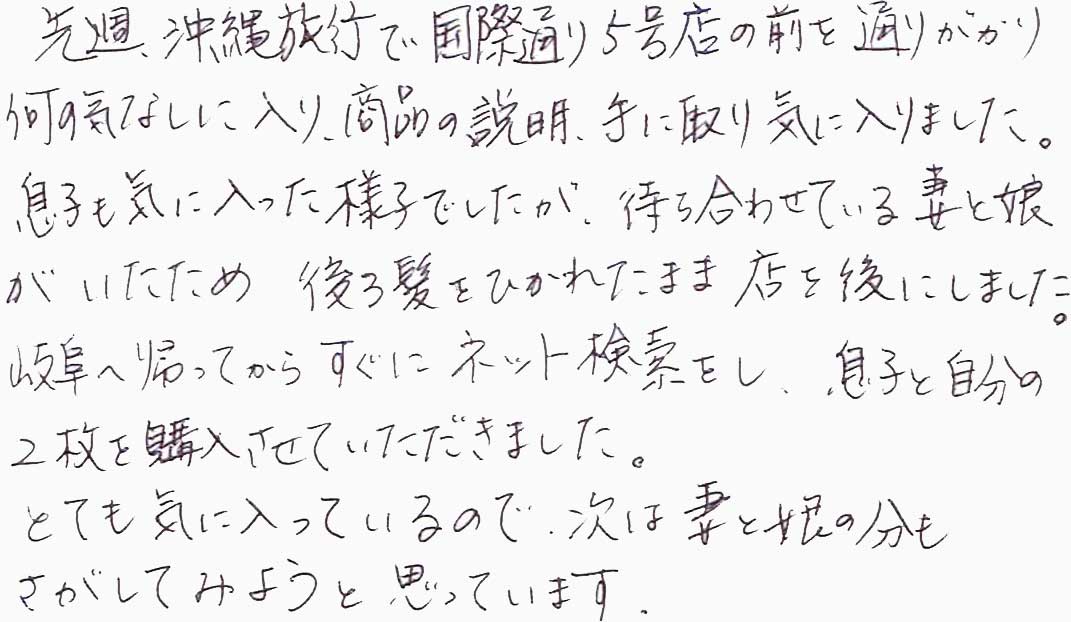 先週、沖縄旅行で国際通り5号店の前を通りがかり
何の気なしに入り、商品の説明、手に取り気に入りました。
息子も気に入った様子でしたが、待ち合わせている妻と娘
がいたため 後ろ髪をひかれたまま 店を後にしました。
岐阜へ帰ってからすぐにネット検索をし、息子と自分の
2枚を購入させていただきました。
とても気に入っているので、次は妻と娘の分も
さがしてみようと思っています.